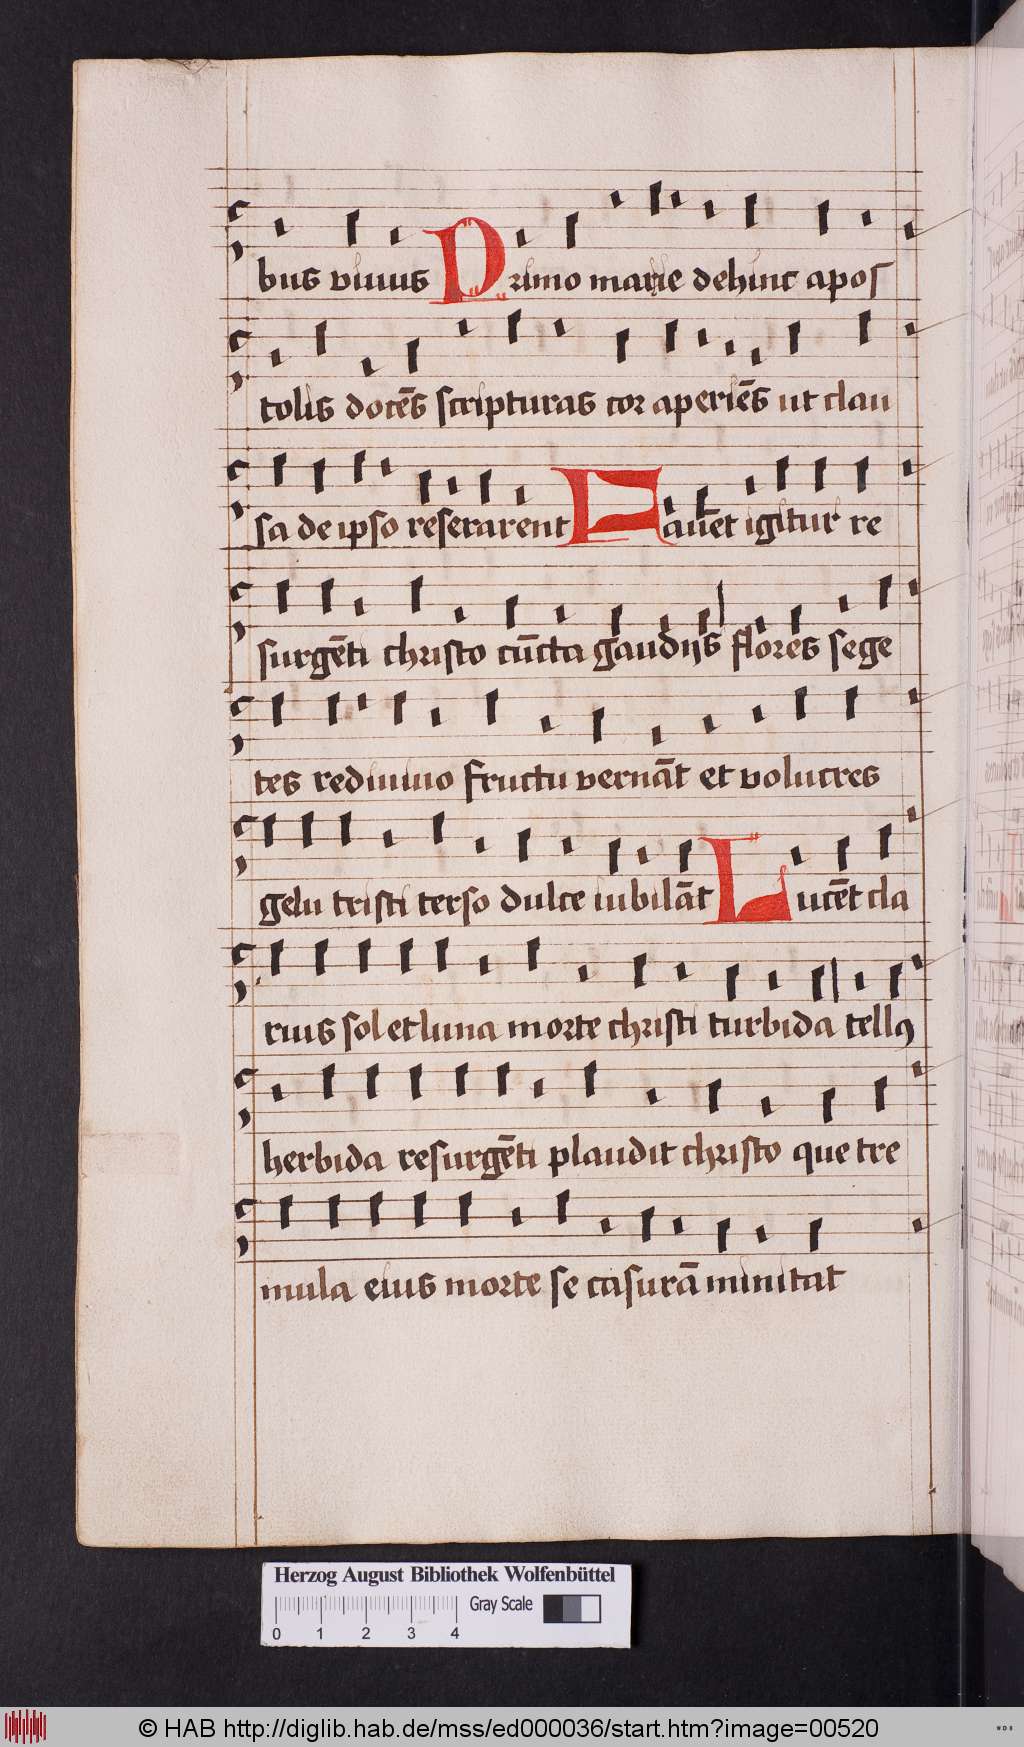 bus viuus Primo marie dehinc apos
tolis docēs scripturas cor aperiēs ut clau
sa de ipso reserarent Fauēt igitur re
surgēti christo cūcta gaudijs flores sege
tes rediuiuo fructu vernāt et volucres
gelu tristi terso dulce iubilāt Lucēt cla
rius sol et luna morte christi turbida tellꝰ
herbida resurgēti plaudit christo que tre
mula eius morte se casurā minitat
Herzog August Bibliothek Wolfenbüttel
Gray Scale
0 1 2 3 4
© HAB http://diglib.hab.de/mss/ed000036/start.htm?image=00520